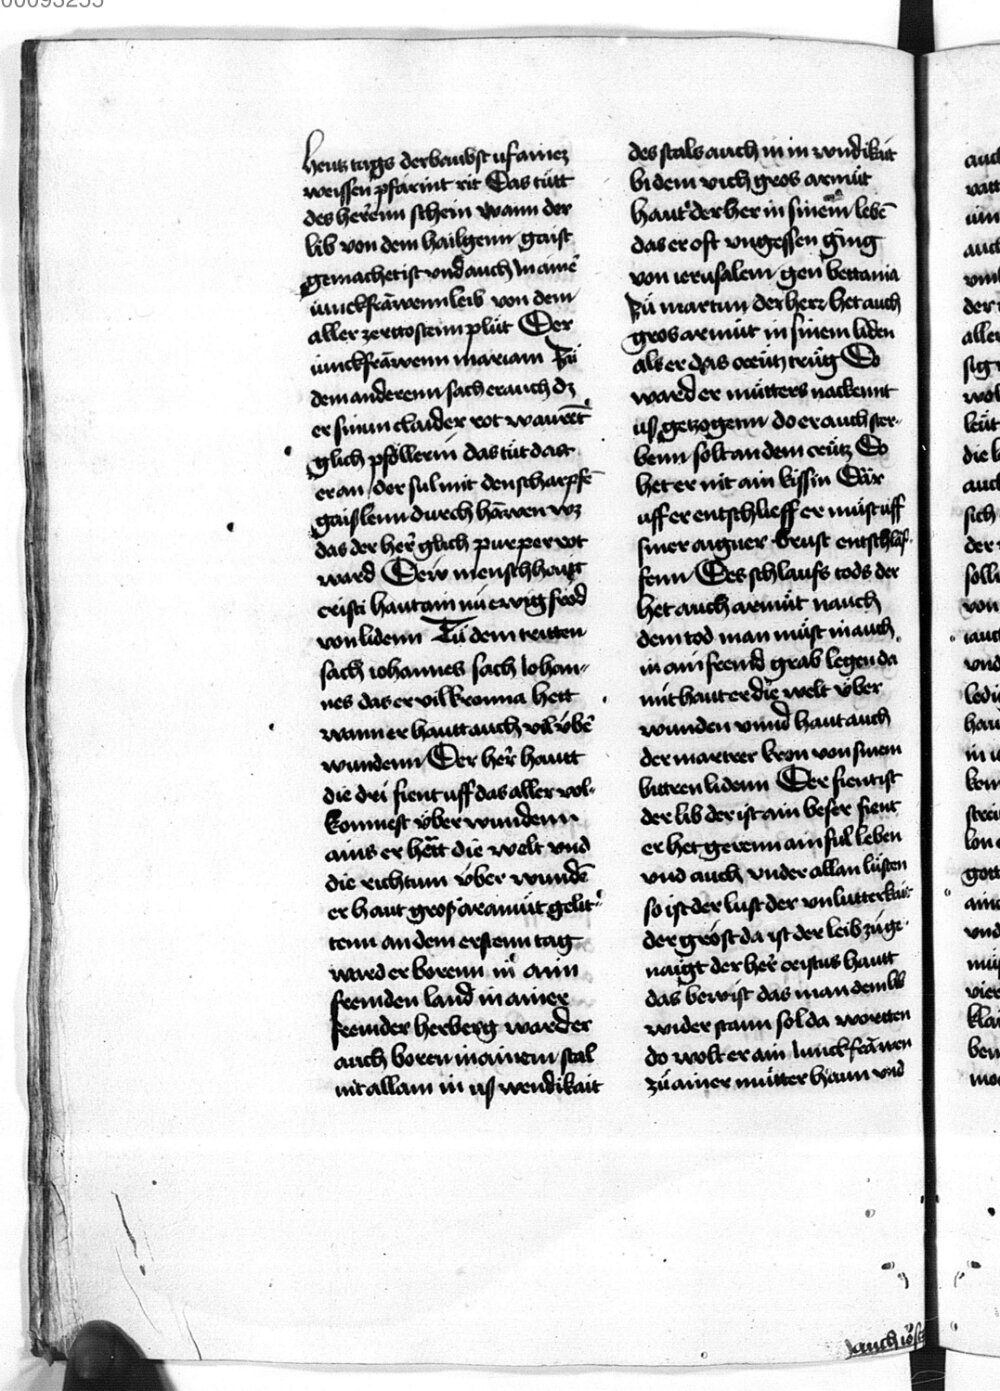 00093255
heutz tags der baubst uf ainez
weissen pfärint rit Das tütt
des herenn schein wann der
lib von dem hailgenn gaist
gemachet ist vnd auch in aine
iunckfräwenn leib von dem
aller zerttostenn plüt Der
iunckfräwenn mariam Zü
dem anderenn sach er auch dz
er sinnn claider rot warent
glich pföllerin das tüt dast
er an der sul mit den scharpfe
gaislenn durch hawen wz
das der her glich purper rot
ward Dem menschhait
cristi haut ain nü ewig fröd
von lidenn Zü dem tritten
sach iohannes sach Johan-
nes das er vil kronna hett
wann er hautt auch vil über
wundenn Der her hautt
die dri fient uff das aller vol-
komnest über wundenn
ains er hett die welt vnd
die richtum über wunde
er haut gros aramüt gelit-
tenn an dem erstenn tag
ward er borenn in ainn
fremden land in ainer
fremder herberg ward er
auch boren in ainem stal
nit allain in us wendikait
des stals auch in in wndikait
bi dem vich gros armüt
haut der her in sinem lebe
das er oft vngessen ging
von ierusalem gen bettania
zü martun der herr het auch
gros armüt in sinem liden
als er das creütz trüg Do
ward er mütters nackennt
us gezogenn do er auch ster-
benn solt an dem crütz Do
het er nit ain kissin Dar
uff er entschlieff er müst uff
siner aigner brust entschlaf-
fenn Des schlaufs tods der
het auch armüt nauch
dem tod man müst in auch
in ain fremd grab legen da
mit haut er die welt über
wunden vnnd haut auch
der martrer kron von sinem
bittren lidenn Der fient ist
der lib der ist ain beser fient
er het gerenn ain ful leben
vnd auch vnder allan lüsten
so ist der lust der vnlutterkait
der gröst da ist der leib züge-
naigt der her cristus hautt
das bewist das man dem lib
wider stann sol da wortten
do wolt er ain iunckfräwen
zü ainer mütter hann vnd